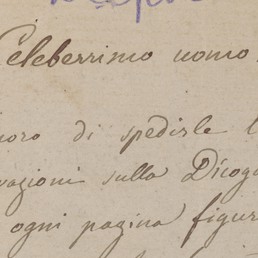 Celeberrimo uomo
di spedirle l
sulla Dicoga
ogni pagina figur